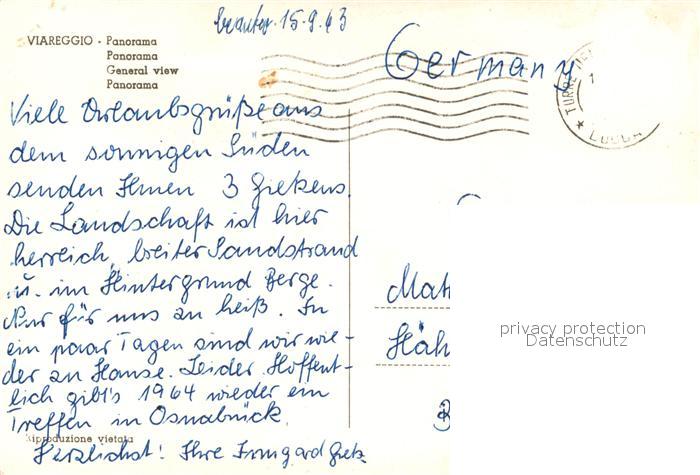 15.9.63
VIAREGGIO - Panorama
Panorama
General view
Panorama
Germany
TORRE DEL
LUCCA
Viele Urlaubsgrüße aus
dem sonnigen Süden
senden Ihnen 3 Gieckens.
Die Landschaft ist hier
herrlich, breiter Sandstrand
u. im Hintergrund Berge.
Nur für uns zu heiß. In
ein paar Tagen sind wir wie-
der zu Hause. Leider. Hoffent-
lich gibt's 1964 wieder ein
Treffen in Osnabrück.
Herzlichst! Ihre Irmgard
Riproduzione vietata
privacy protection
Datenschutz